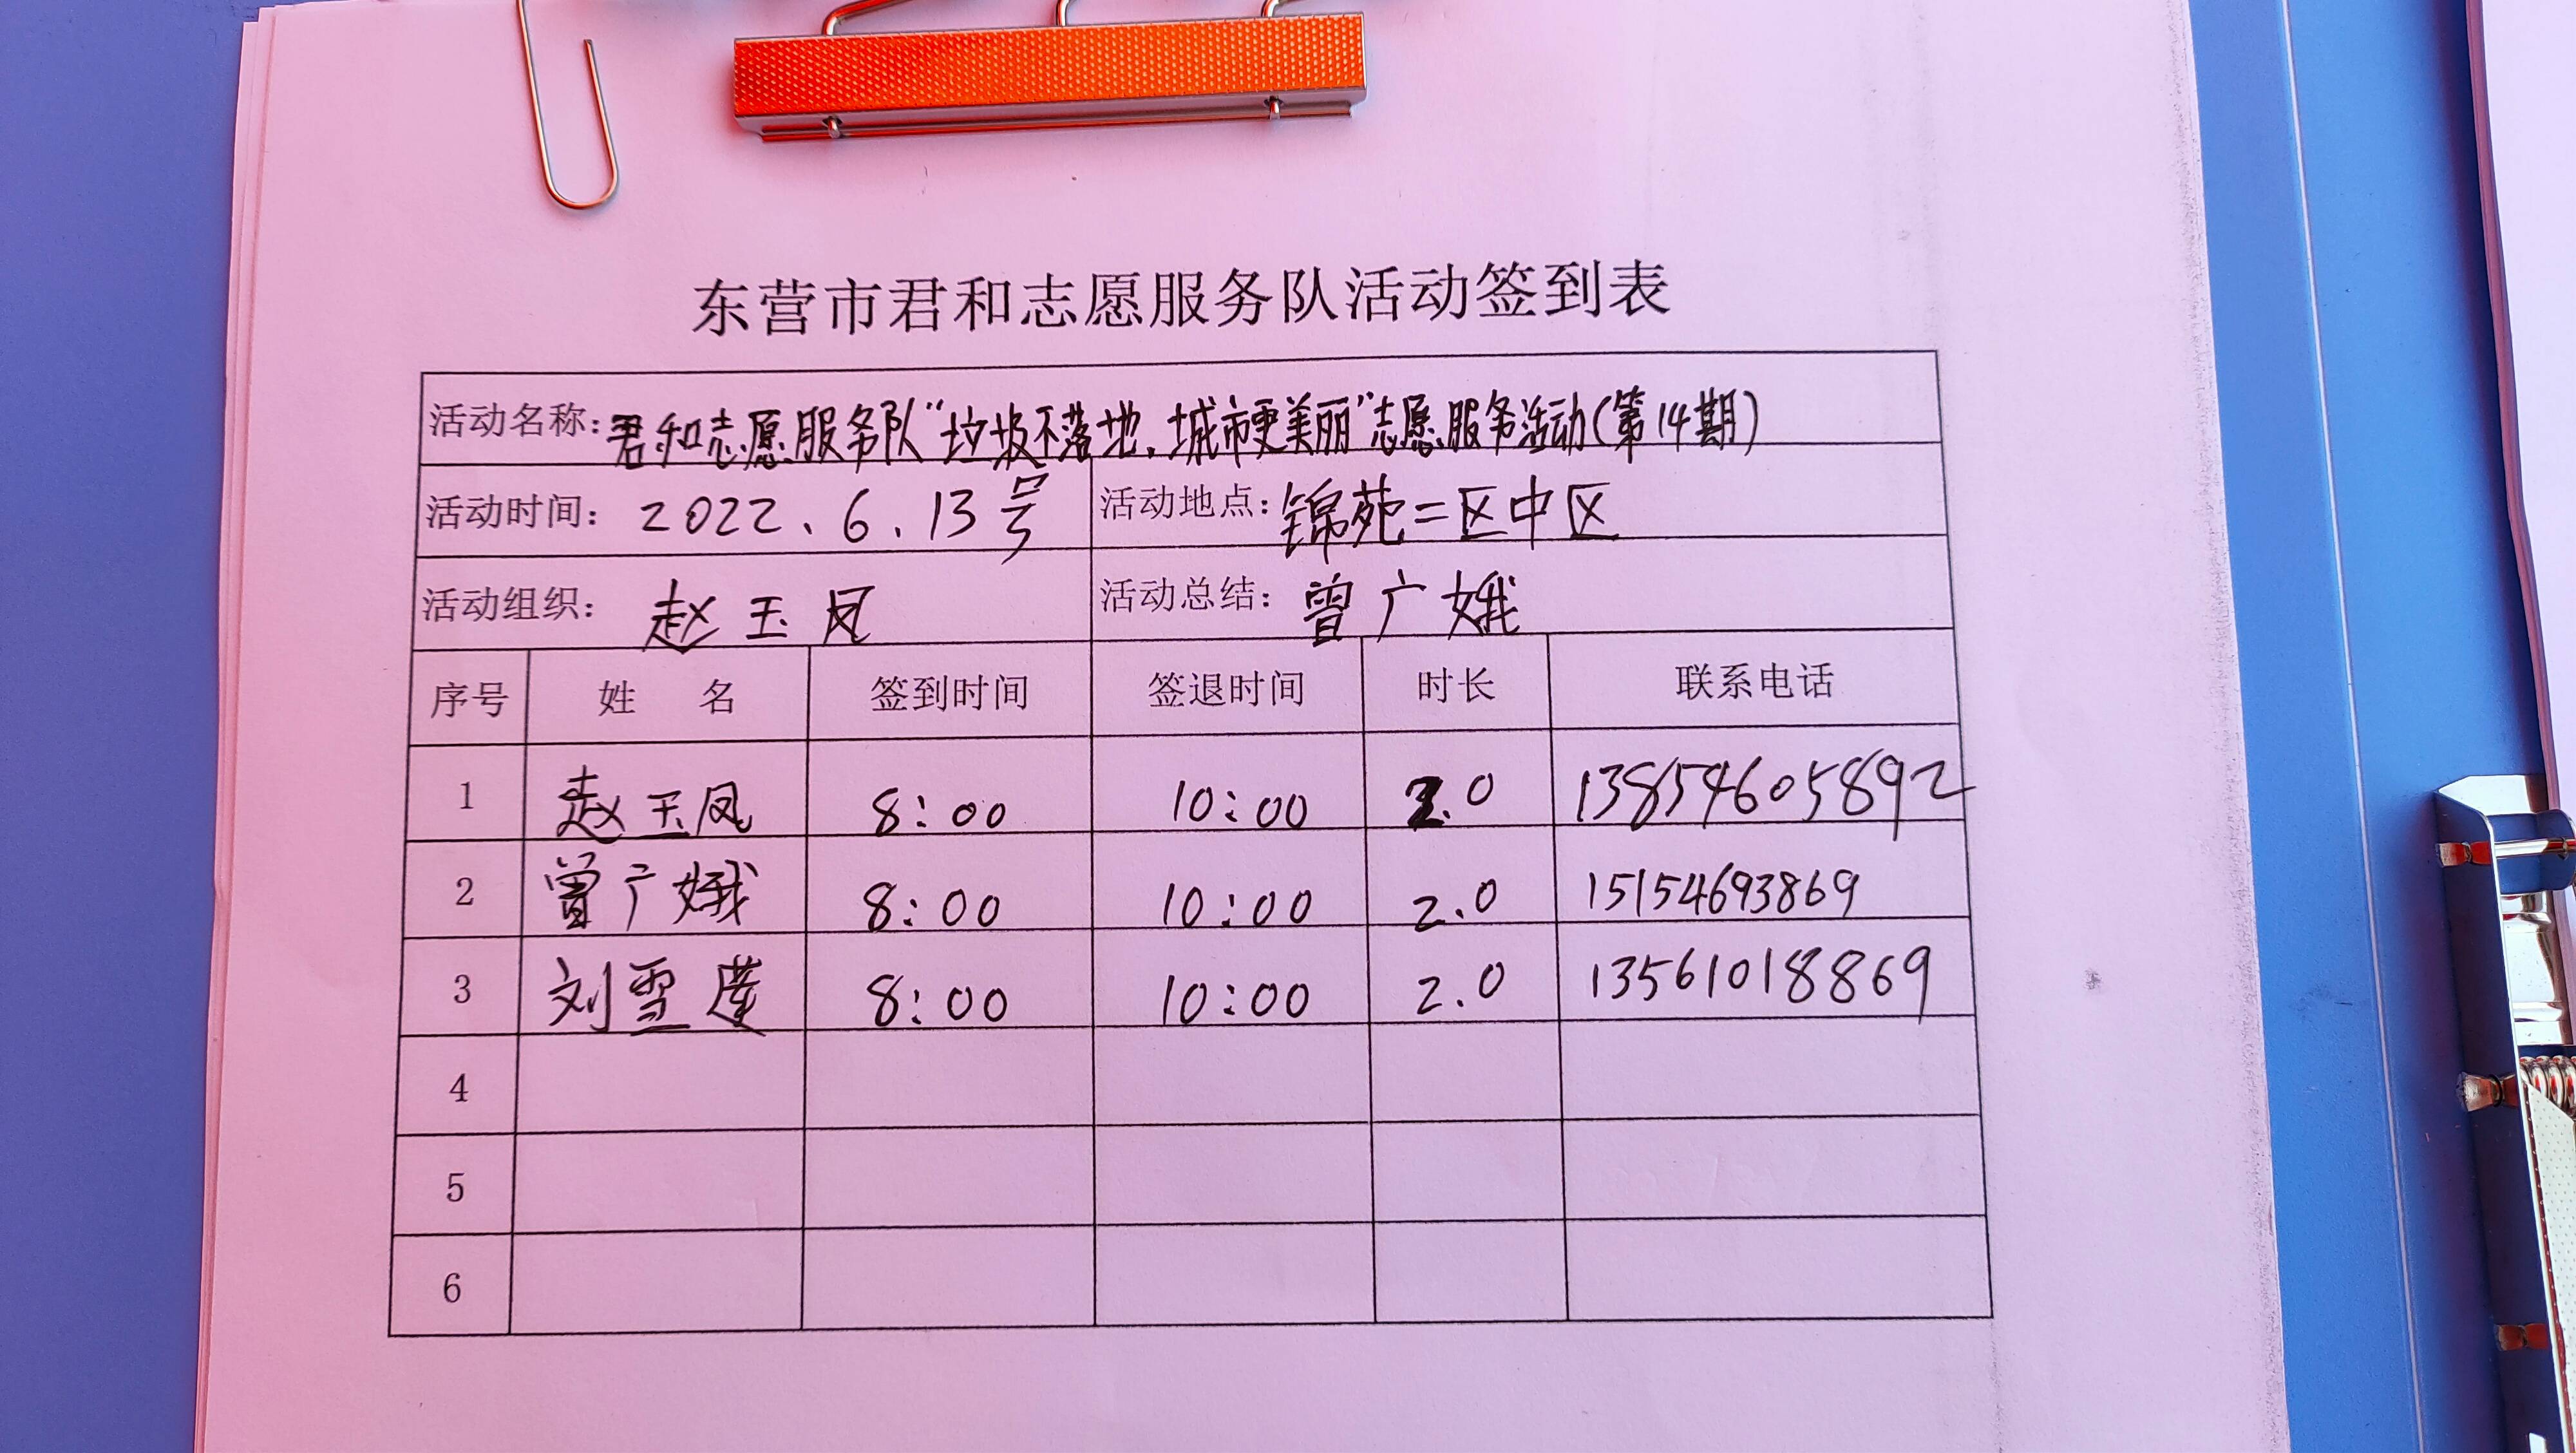 东营市君和志愿服务队活动签到表
活动名称：君和志愿服务队“垃圾不落地，城市更美丽”志愿服务活动（第14期）
活动时间：2022、6、13号 活动地点：锦苑二区中区
活动组织：赵玉凤 活动总结：曾广娥
序号 姓 名 签到时间 签退时间 时长 联系电话
1 赵玉凤 8:00 10:00 2.0 13854605892
2 曾广娥 8:00 10:00 2.0 15154693869
3 刘雪莲 8:00 10:00 2.0 13561018869
4
5
6